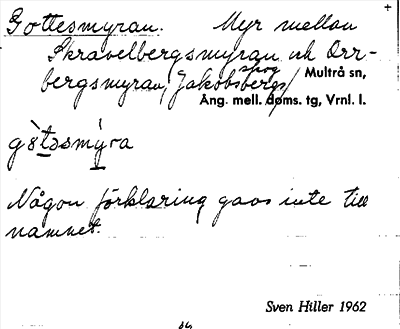 Gottesmyran. Myr mellan
Skravelbergsmyran och Orr-
bergsmyran, Jakobsbergs skog
Multrå sn,
Ång. mell. doms. tg, Vrnl. l.
gòtəsmýra
Någon förklaring gavs inte till
namnet.
Sven Hiller 1962